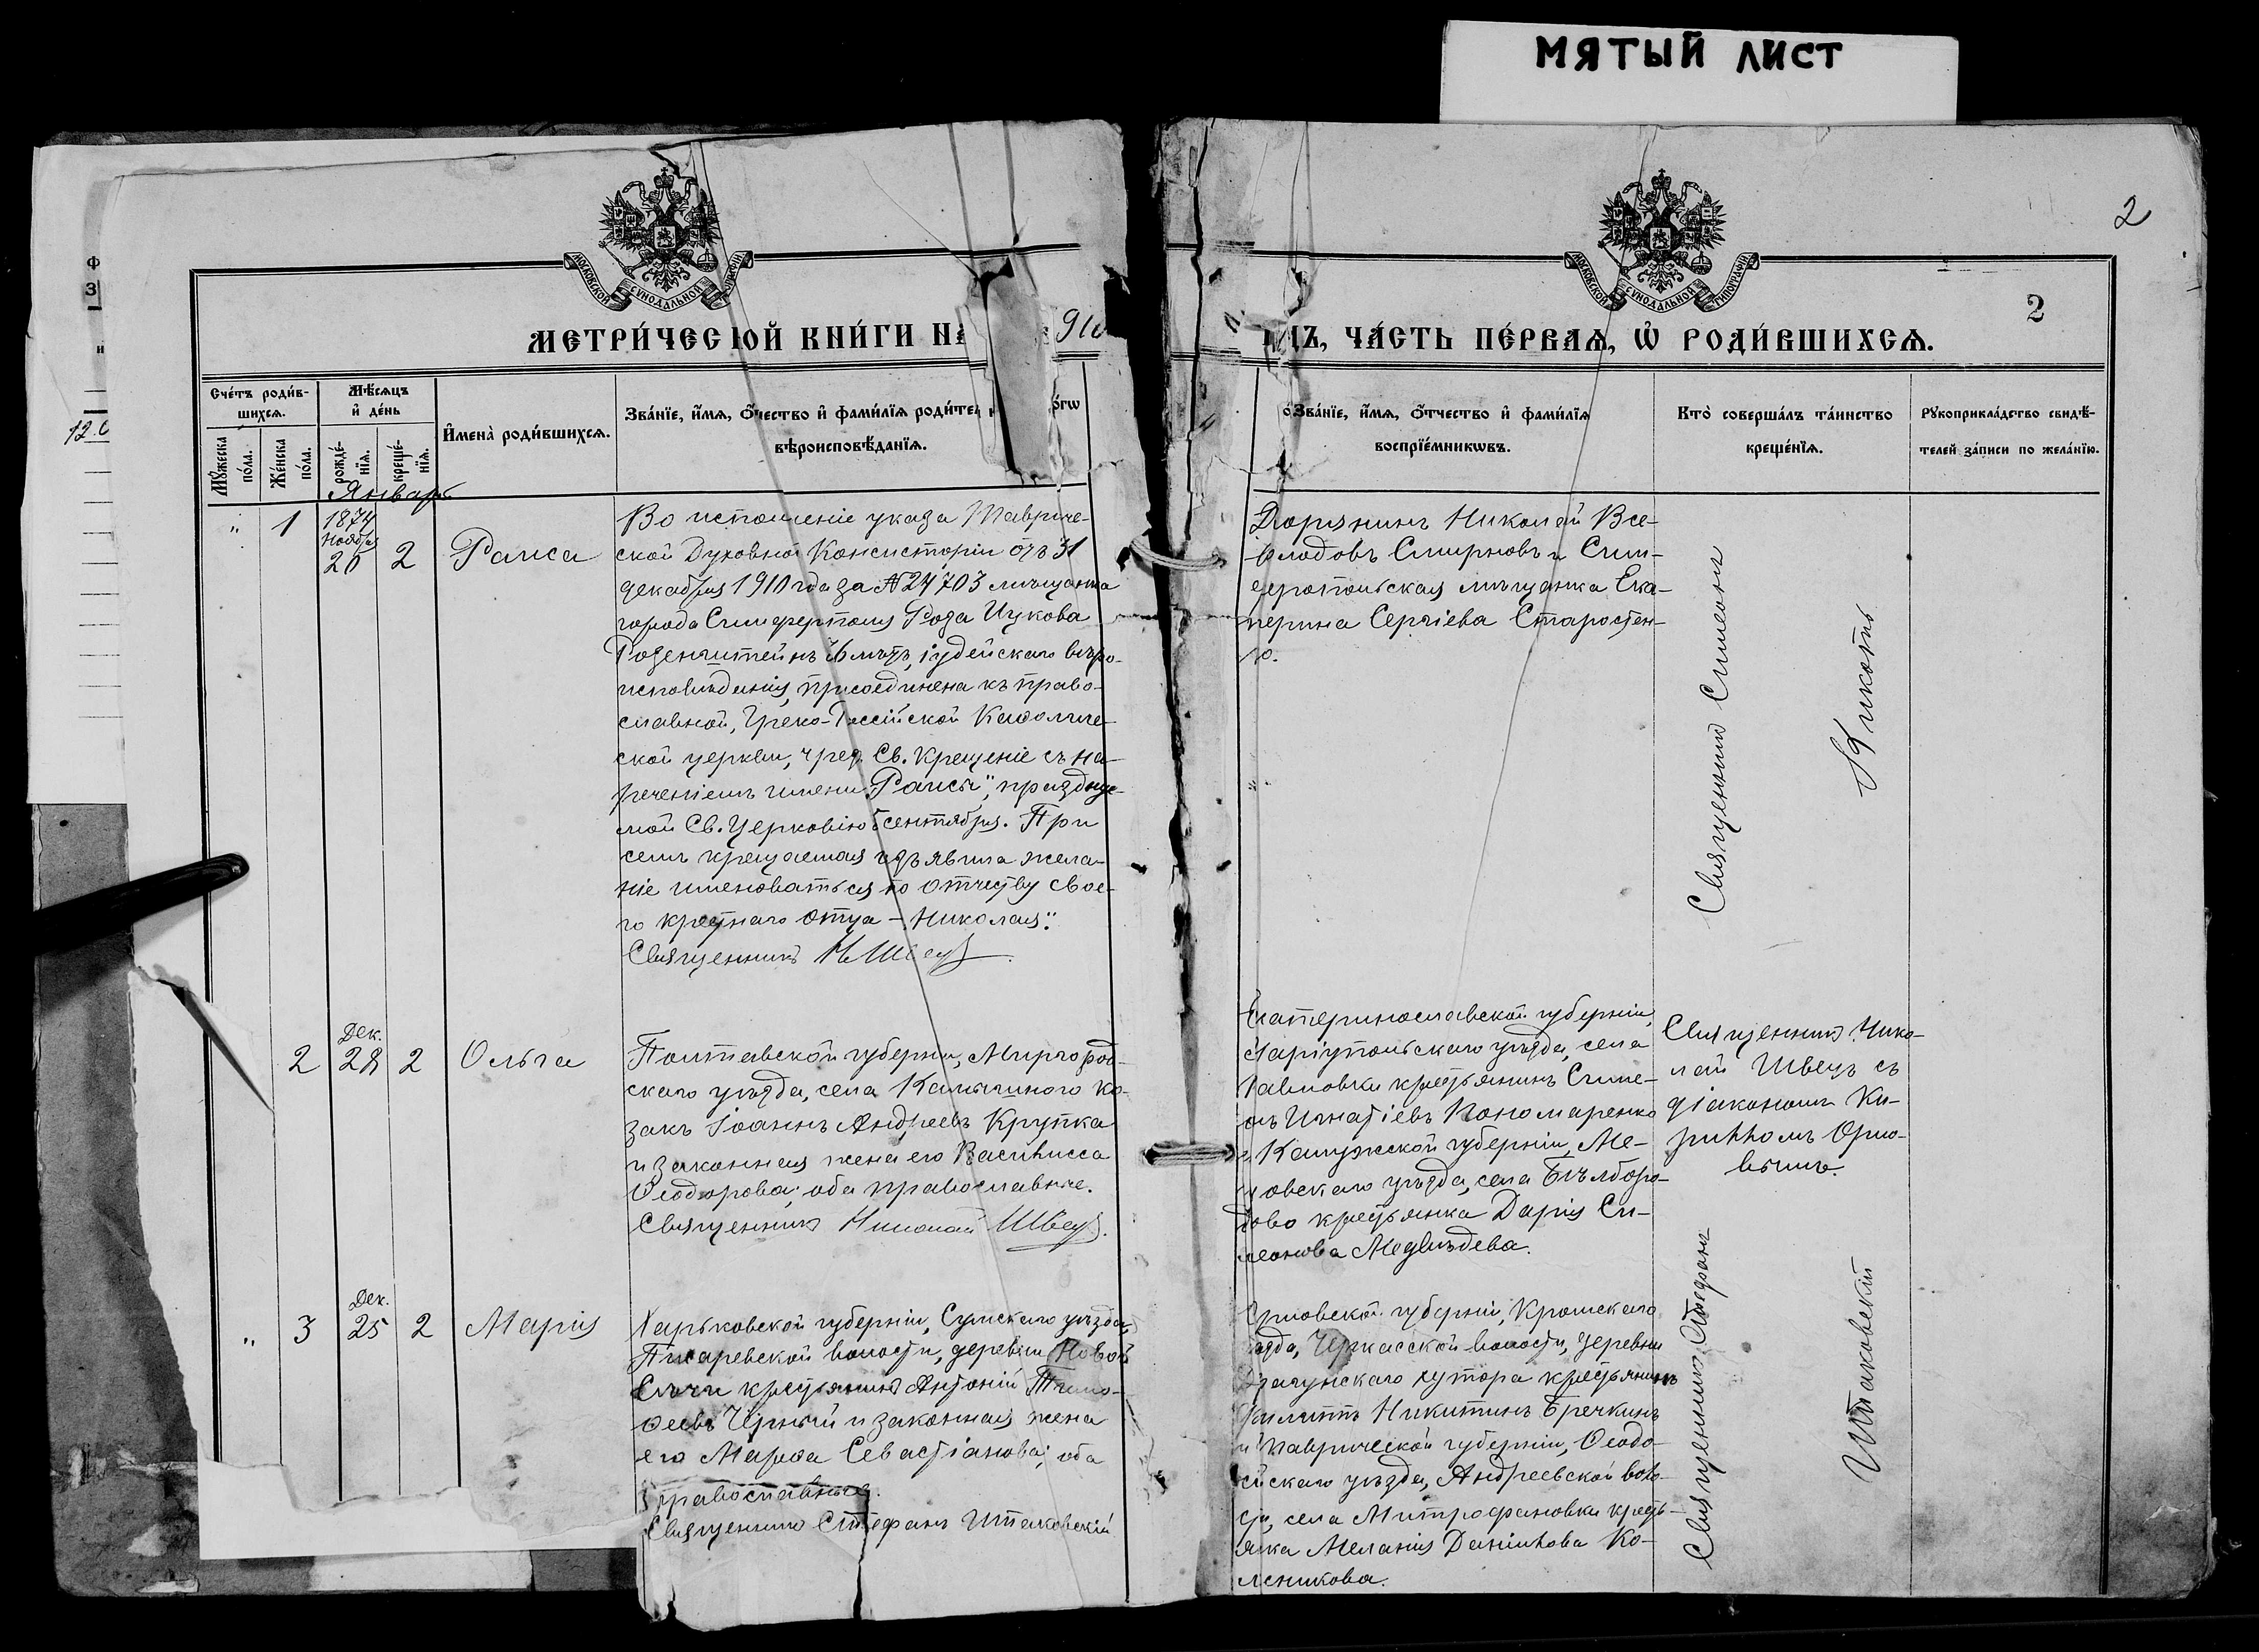 МЯТЫЙ ЛИСТ
2
МОСКОВСКОЙ СѴНОДАЛЬНОЙ
МОСКОВСКОЙ СѴНОДАЛЬНОЙ ТИПОГРАФІИ
2
МЕТРИ́ЧЕС ОЙ КНИ́ГИ НА 910
ДЪ, ЧА́СТЬ ПЕ́РВАЯ, Ѡ҆ РОДИ́ВШИХСЯ.
Сче́тъ роди́в-
шихся.
Мѣ́сяцъ
и҆ де́нь
Мꙋ́жеска по́ла.
Же́нска по́ла.
рожде́-
нїя.
креще́-
нїя.
И҆мена̀ роди́вшихся.
Зва́нїе, и҆́мя, ѻ҆́чество и҆ фами́лїя роди́те
вѣроисповѣ́данїя.
Зва́нїе, и҆́мя, ѻ҆́тчество и҆ фами́лїя
воспрїе́мникѡвъ.
Кто̀ соверша́лъ та́инство
креще́нїя.
Рꙋкоприкла́дство свидѣ́-
телей за́писи по жела́нїю.
12.
Январь
„ 1 1874 Ноября 20 2 Раиса
Во исполненіе указа Тавриче-
ской Духовной Консисторіи отъ 31
декабря 1910 года за № 24703 мѣщанка
города Симферополя Роза Ицкова
Розенштейнъ 36 лѣтъ, іудейскаго вѣро-
исповѣданія, присоединена къ право-
славной, Греко-Россійской Каѳоличе-
ской церкви, чрез Св. Крещеніе съ на-
реченіемъ имени „Раисы", празднуе-
мой Св. Церковію 5 сентября. При
семъ крещаемая изъявила жела-
ніе именоваться по отчеству свое-
го крестнаго отца – „Николая".
Священникъ Н. Швецъ.
Дворянинъ Николай Все-
володовъ Смирновъ и Сим-
феропольская мѣщанка Ека-
терина Сергіева Старостен-
ко.
Священникъ Симеонъ
Кикоть
2 Дек. 28 2 Ольга
Полтавской губерніи, Миргород-
скаго уѣзда, села Камышного ко-
закъ Іоаннъ Андреевъ Крупка
и законная жена его Василисса
Ѳеодорова; оба православные.
Священникъ Николай Швецъ.
Екатеринославской губерніи,
Маріупольскаго уѣзда, села
Павловки крестьянинъ Симе-
онъ Игнатіевъ Пономаренко
и Калужской губерніи, Ме-
щовскаго уѣзда, села
крестьянка Дарія Си-
меонова Медвѣдева.
Священникъ Нико-
лай Швецъ съ
діакономъ Ки-
рилломъ Орло-
вымъ.
„ 3 Дек. 25 2 Марія
Харьковской губерніи, Сумскаго уѣзда,
Писаревской волости, деревни Новой
Сѣчи крестьянинъ Антоній Тимо-
ѳеевъ Чёрный и законная жена
его Марѳа Севастіанова; оба
православные.
Священникъ Стефанъ Штаковскій
Орловской губерніи, Кромскаго
уѣзда, Черкасской волости, деревни
Драгунскаго хутора крестьянинъ
Филиппъ Никитинъ Бречкинъ
и Таврической губерніи, Ѳеодо-
сійскаго уѣзда, Андреевской воло-
сти, села Митрофановки кресть-
янка Меланія Даніилова Ко-
лесникова.
Священникъ Стефанъ
Штаковскій